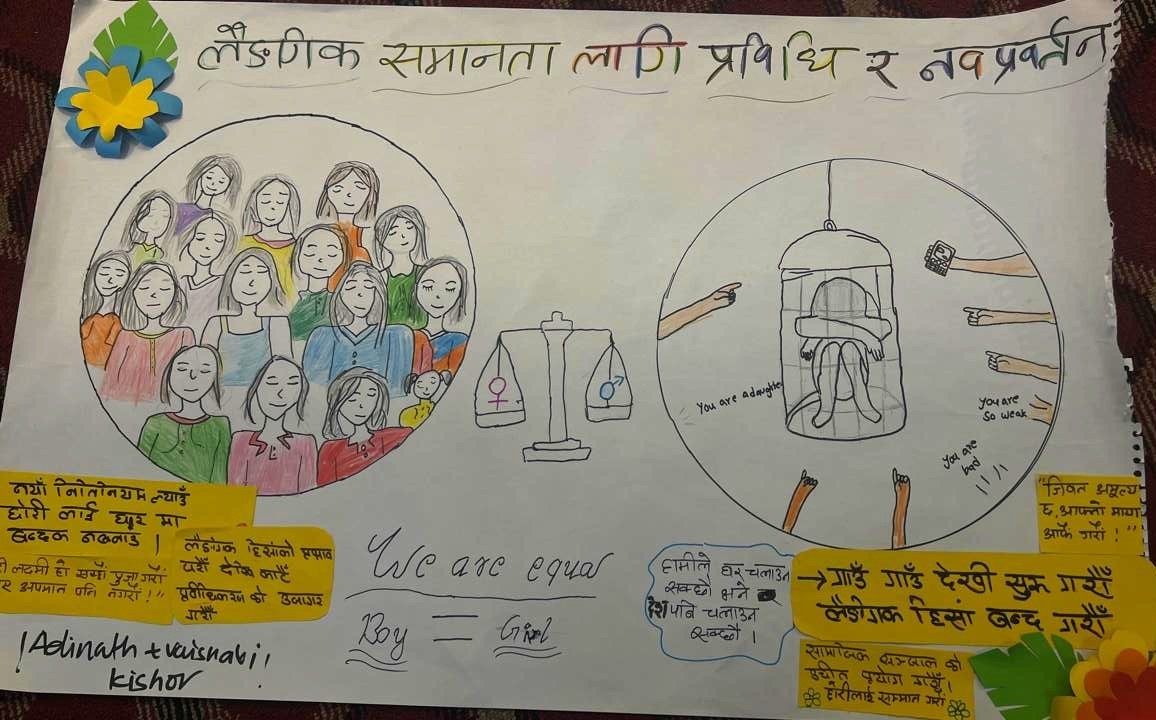 लैङगिक समानता लागि प्रविधि र नवप्रवर्तन
You are a daughter
You are
So weak
You are
bad
नयाँ नितीनियम ल्याउँ
छोरी लाई घर मा
बन्दक नबनाउँ !
लक्ष्मी हो सधौँ पुजा गरौँ
अपमान पनि नगरौँ !"
लैङगिक हिसांको प्रभाव
यहीँ देखि काटौँ
को उजागर
गरौँ
!Adinath + vaisnabi!
kishor
We are equal
Boy = Girl
हामीले घर चलाउन
सक्छौ भने
देश पनि चलाउन
सक्छौ ।
"जिवन अमूल्य
छ, आफ्नो माया
आफै गरौं !"
→ गाउँ गाउँ देखी सुरु गरौँ
लैङगिक हिसां बन्द गरौँ
सामाजिक सञ्जाल को
उचीत प्रयोग गरौँ !
छोरीलाई सम्मान गरौं